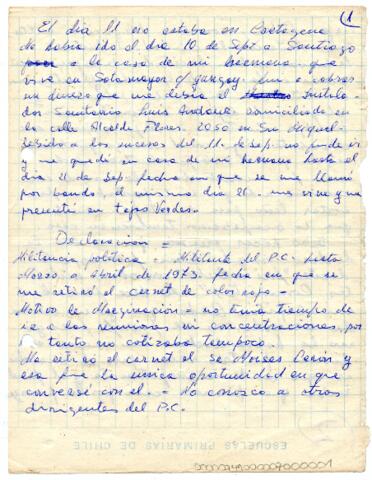 1
El dia 11 no estaba en Cartagena
Me habia ido el dia 10 de Sept a Santiago
a la casa de mi hermana que
vive en Sotomayor c/ Yungay. Fui a cobrar
un dinero que me debia el Instala-
dor Sanitario Luis Andaur domiciliado en
la calle Alcalde Flores 2050 en San Miguel.
Debido a los sucesos del 11 de Sep. no pude vi
y me quedé en casa de mi hermana hasta el
dia 21 de Sep. fecha en que se me llamó
por bando, el mismo dia 21 me vine y me
presenté en Tejas Verdes.
Declaracion =
Militancia politica = Militante del P.C. hasta
Marzo a Abril de 1973. fecha en que se
me retiró el carnet de color rojo.
Motivo de Marginacion = no tenia tiempo de
ir a las reuniones ni concentraciones, por
tanto no cotizaba tampoco.
Me retiró el carnet el Sr Moises y
esa fue la unica oportunidad en que
conversé con el. - No conozco a otros
dirigentes del P.C.
ESCUELAS PRIMARIAS DE CHILE